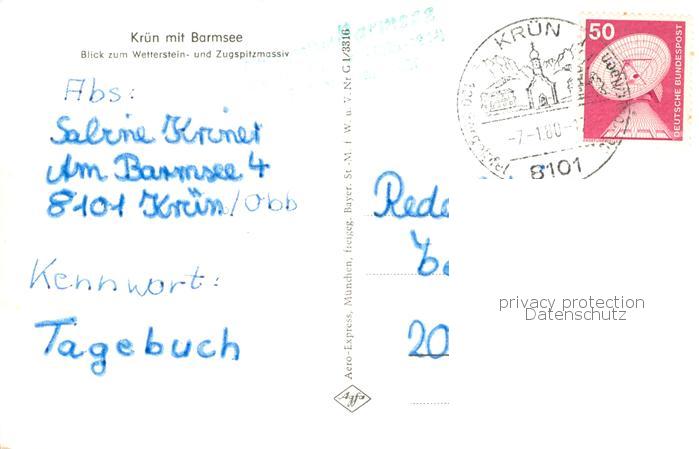 Krün mit Barmsee
Blick zum Wetterstein- und Zugspitzmassiv
Abs:
Sabine Kriner
Am Barmsee 4
8101 Krün/Obb
Kennwort:
Tagebuch
Aero-Express, München, freigeg. Bayer. St.-M. f. W. u. V. Nr. G 1/3316
Agfa
Barmsee
KRÜN
-7.-1.80-
8101
50
DEUTSCHE BUNDESPOST
Rede
20
privacy protection
Datenschutz